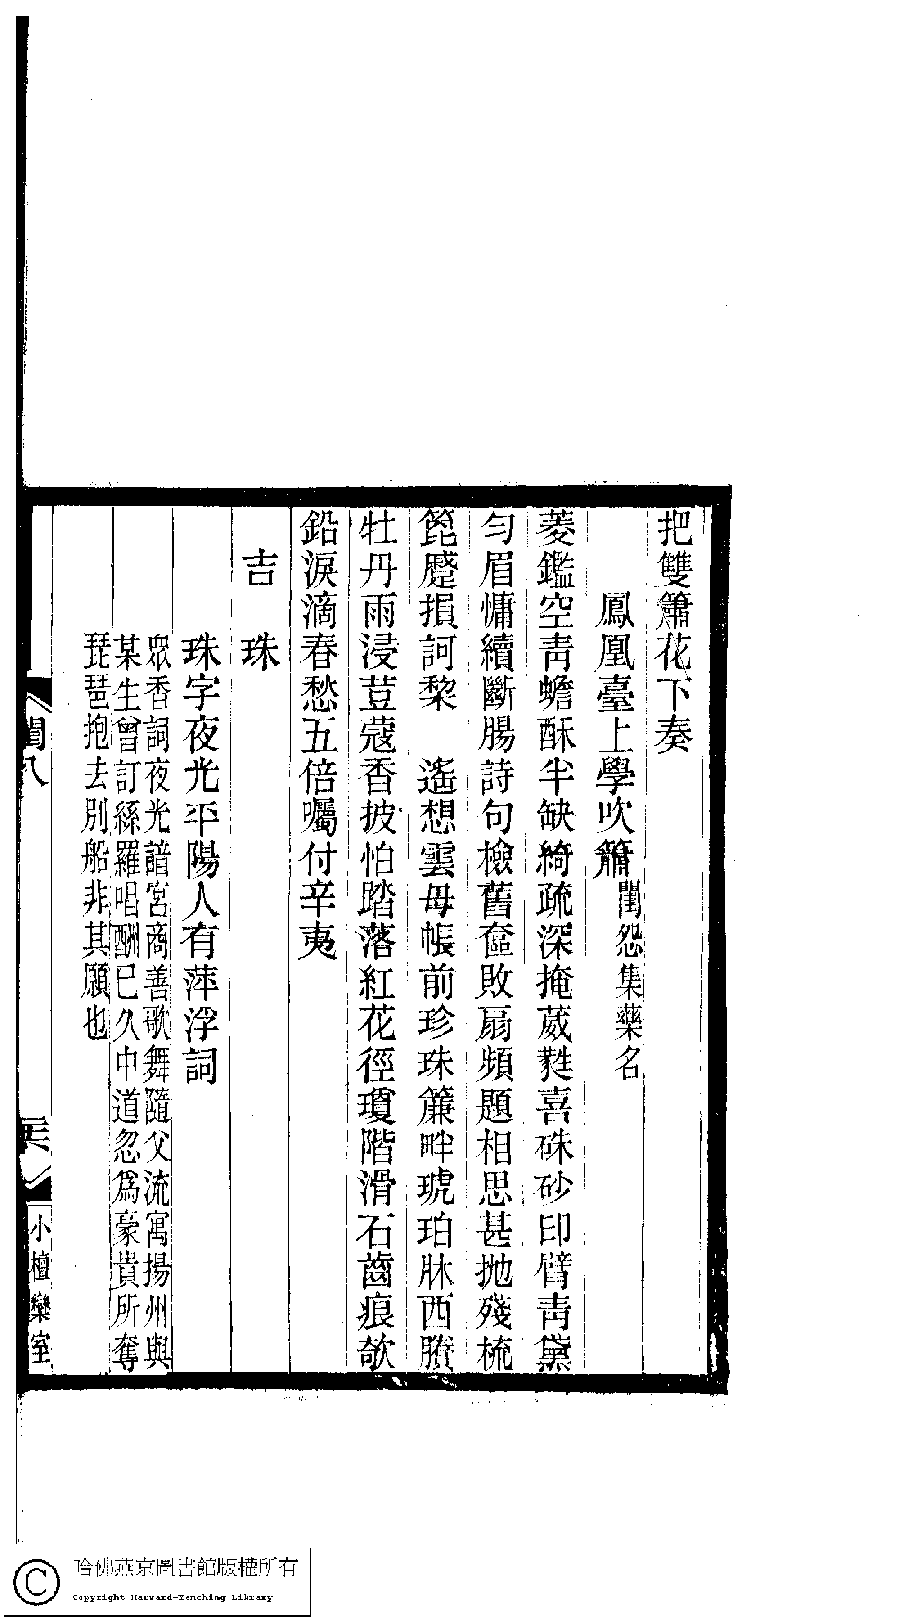 把雙簫花下奏
鳳凰臺上學吹簫閨怨集藥名
菱鑑空青蟾酥半缺綺疏深掩葳蕤喜硃砂印臂青黛
勻眉慵續斷腸詩句檢舊奩敗扇頻題相思甚拋殘梳
篦蹙損訶棃　遙想雲母帳前珍珠簾畔琥珀牀西賸
牡丹雨浸荳蔻香披怕踏落紅花徑瓊階滑石齒痕欹
鉛淚滴春愁五倍囑付辛夷
吉珠
珠字夜光平陽人有萍浮詞
眾香詞夜光諳宮商善歌舞隨父流寓揚州與
某生曾訂絲羅唱酬已久中道忽爲豪貴所奪
琵琶抱去別船非其願也
閨八
小檀欒室
哈佛燕京圖書館版權所有
Copyright Harvard-Yenching Library